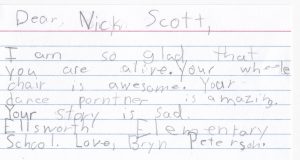 Dear, Nick Scott,
I am so glad that
you are alive. Your wheele
chair is awesome. Your
dance porntner is amazing.
Your story is sad.
Ellsworth Elementary
School. Love, Bryn Peterson.